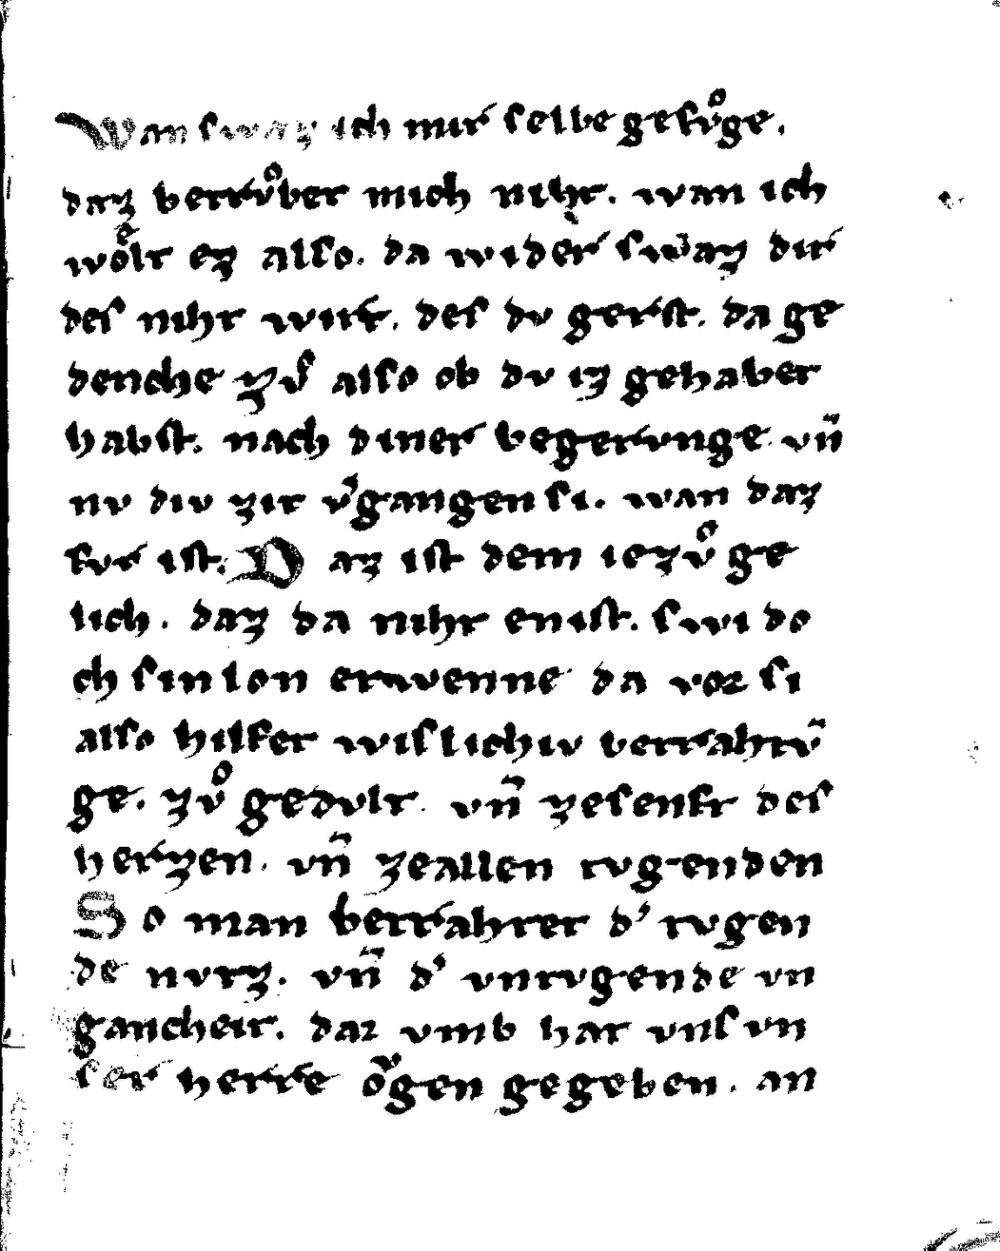 Wan swaz ich mir selbe gefůge.
daz betrůbet mich niht. wan ich
woͤlt ez also. da wider swaz dir
des niht wirt. des dv gerst. da ge
denche zů also ob dv iz gehabet
habst. nach diner begervnge. vn̄
nv div zit v̓gangen si. wan daz
fvr ist. Daz ist dem iezů ge
lich. daz da niht enist. swi do
ch sin lon erwenne da vor si
also hilfet wislichiv betrahtv̄
ge. zů gedvlt. vn̄ zesenft des
herzen. vn̄ zeallen tvgenden
So man betrahtet d' tvgen
de nvtz. vn̄ d' vntvgende vn
gancheit. dar vmb hat vns vn
ser herre oͮgen gegeben. an